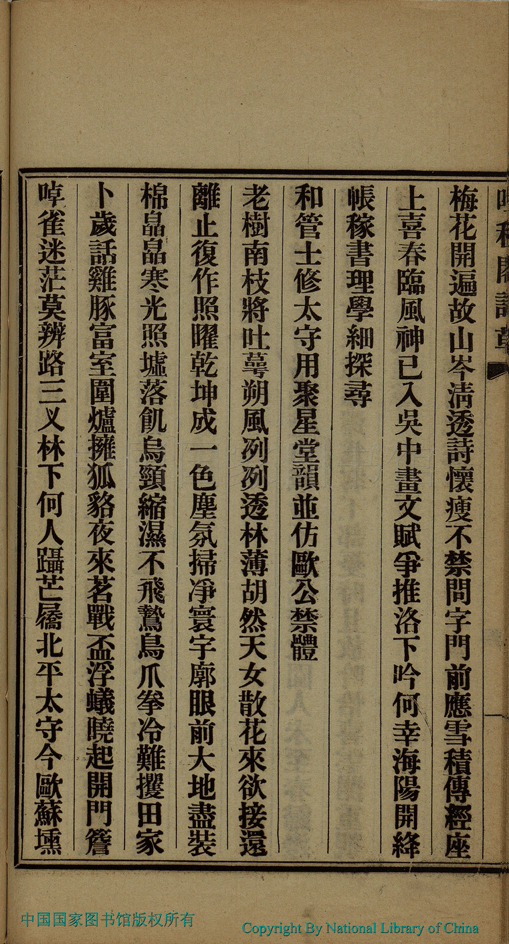 梅花開遍故山岑淸透詩懷瘦不禁問字門前應雪積傳經座
上喜春臨風神已入吳中畫文賦爭推洛下吟何幸海陽開絳
帳稼書理學細探尋
和管士修太守用聚星堂韻並仿歐公禁體
老樹南枝將吐萼朔風冽冽透林薄胡然天女散花來欲接還
離止復作照曜乾坤成一色塵氛掃凈寰宇廓眼前大地盡裝
棉皛皛寒光照墟落飢烏頸縮濕不飛鷙鳥爪拳冷難攫田家
卜歲話雞豚富室圍爐擁狐貉夜來茗戰盃浮蟻曉起開門簷
啅雀迷茫莫辨路三叉林下何人躡芒屩北平太守今歐蘇壎
中国国家图书馆版权所有
Copyright By National Library of China